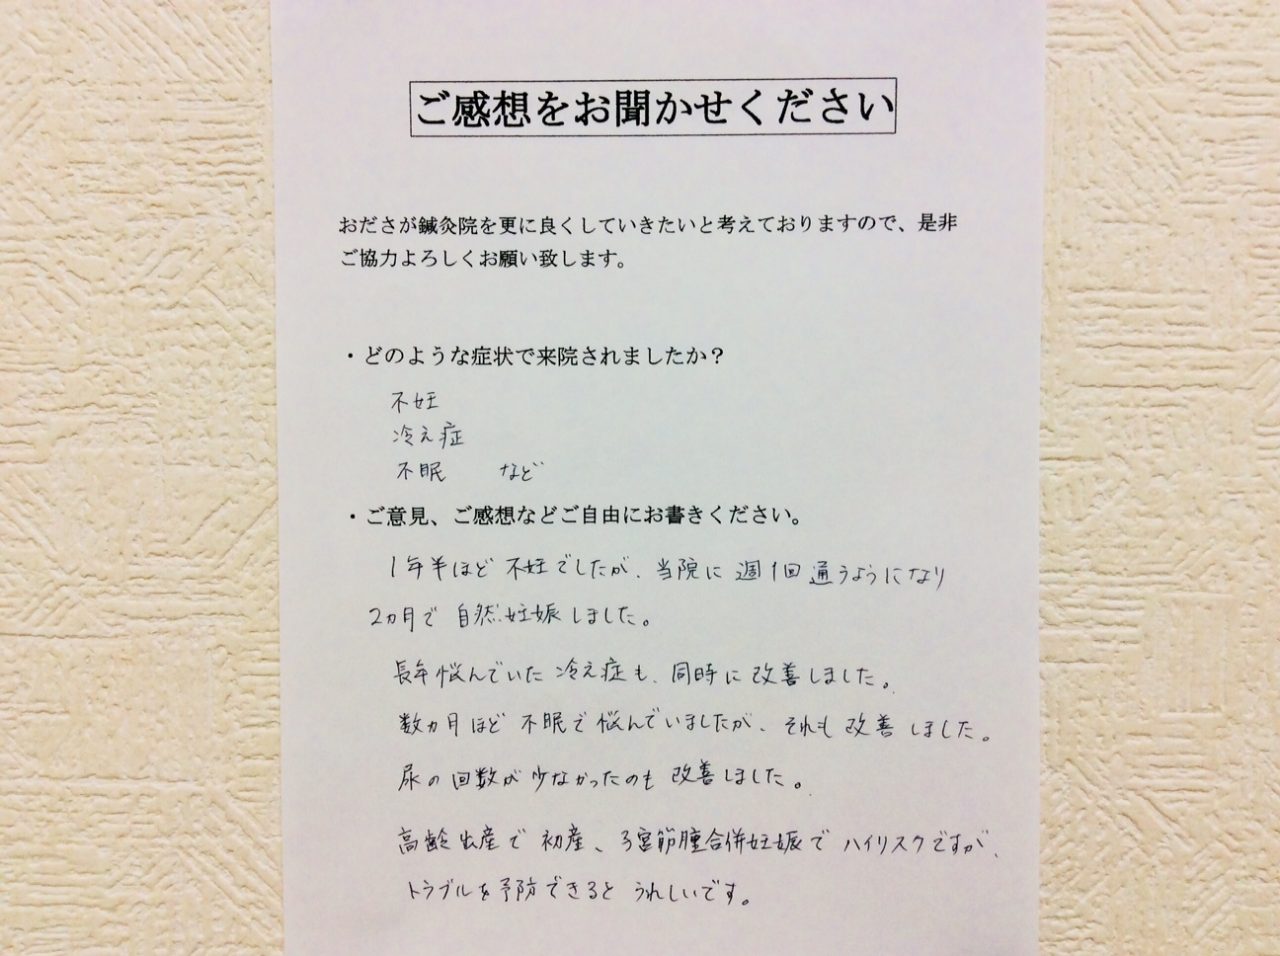 ご感想をお聞かせください
おださが鍼灸院を更に良くしていきたいと考えておりますので、是非
ご協力よろしくお願い致します。
・どのような症状で来院されましたか？
不妊
冷え症
不眠　など
・ご意見、ご感想などご自由にお書きください。
1年半ほど不妊でしたが、当院に週1回通うようになり
2ヵ月で自然妊娠しました。
長年悩んでいた冷え症も、同時に改善しました。
数ヵ月ほど不眠で悩んでいましたが、それも改善しました。
尿の回数が少なかったのも改善しました。
高齢出産で初産、子宮筋腫合併妊娠でハイリスクですが、
トラブルを予防できるとうれしいです。